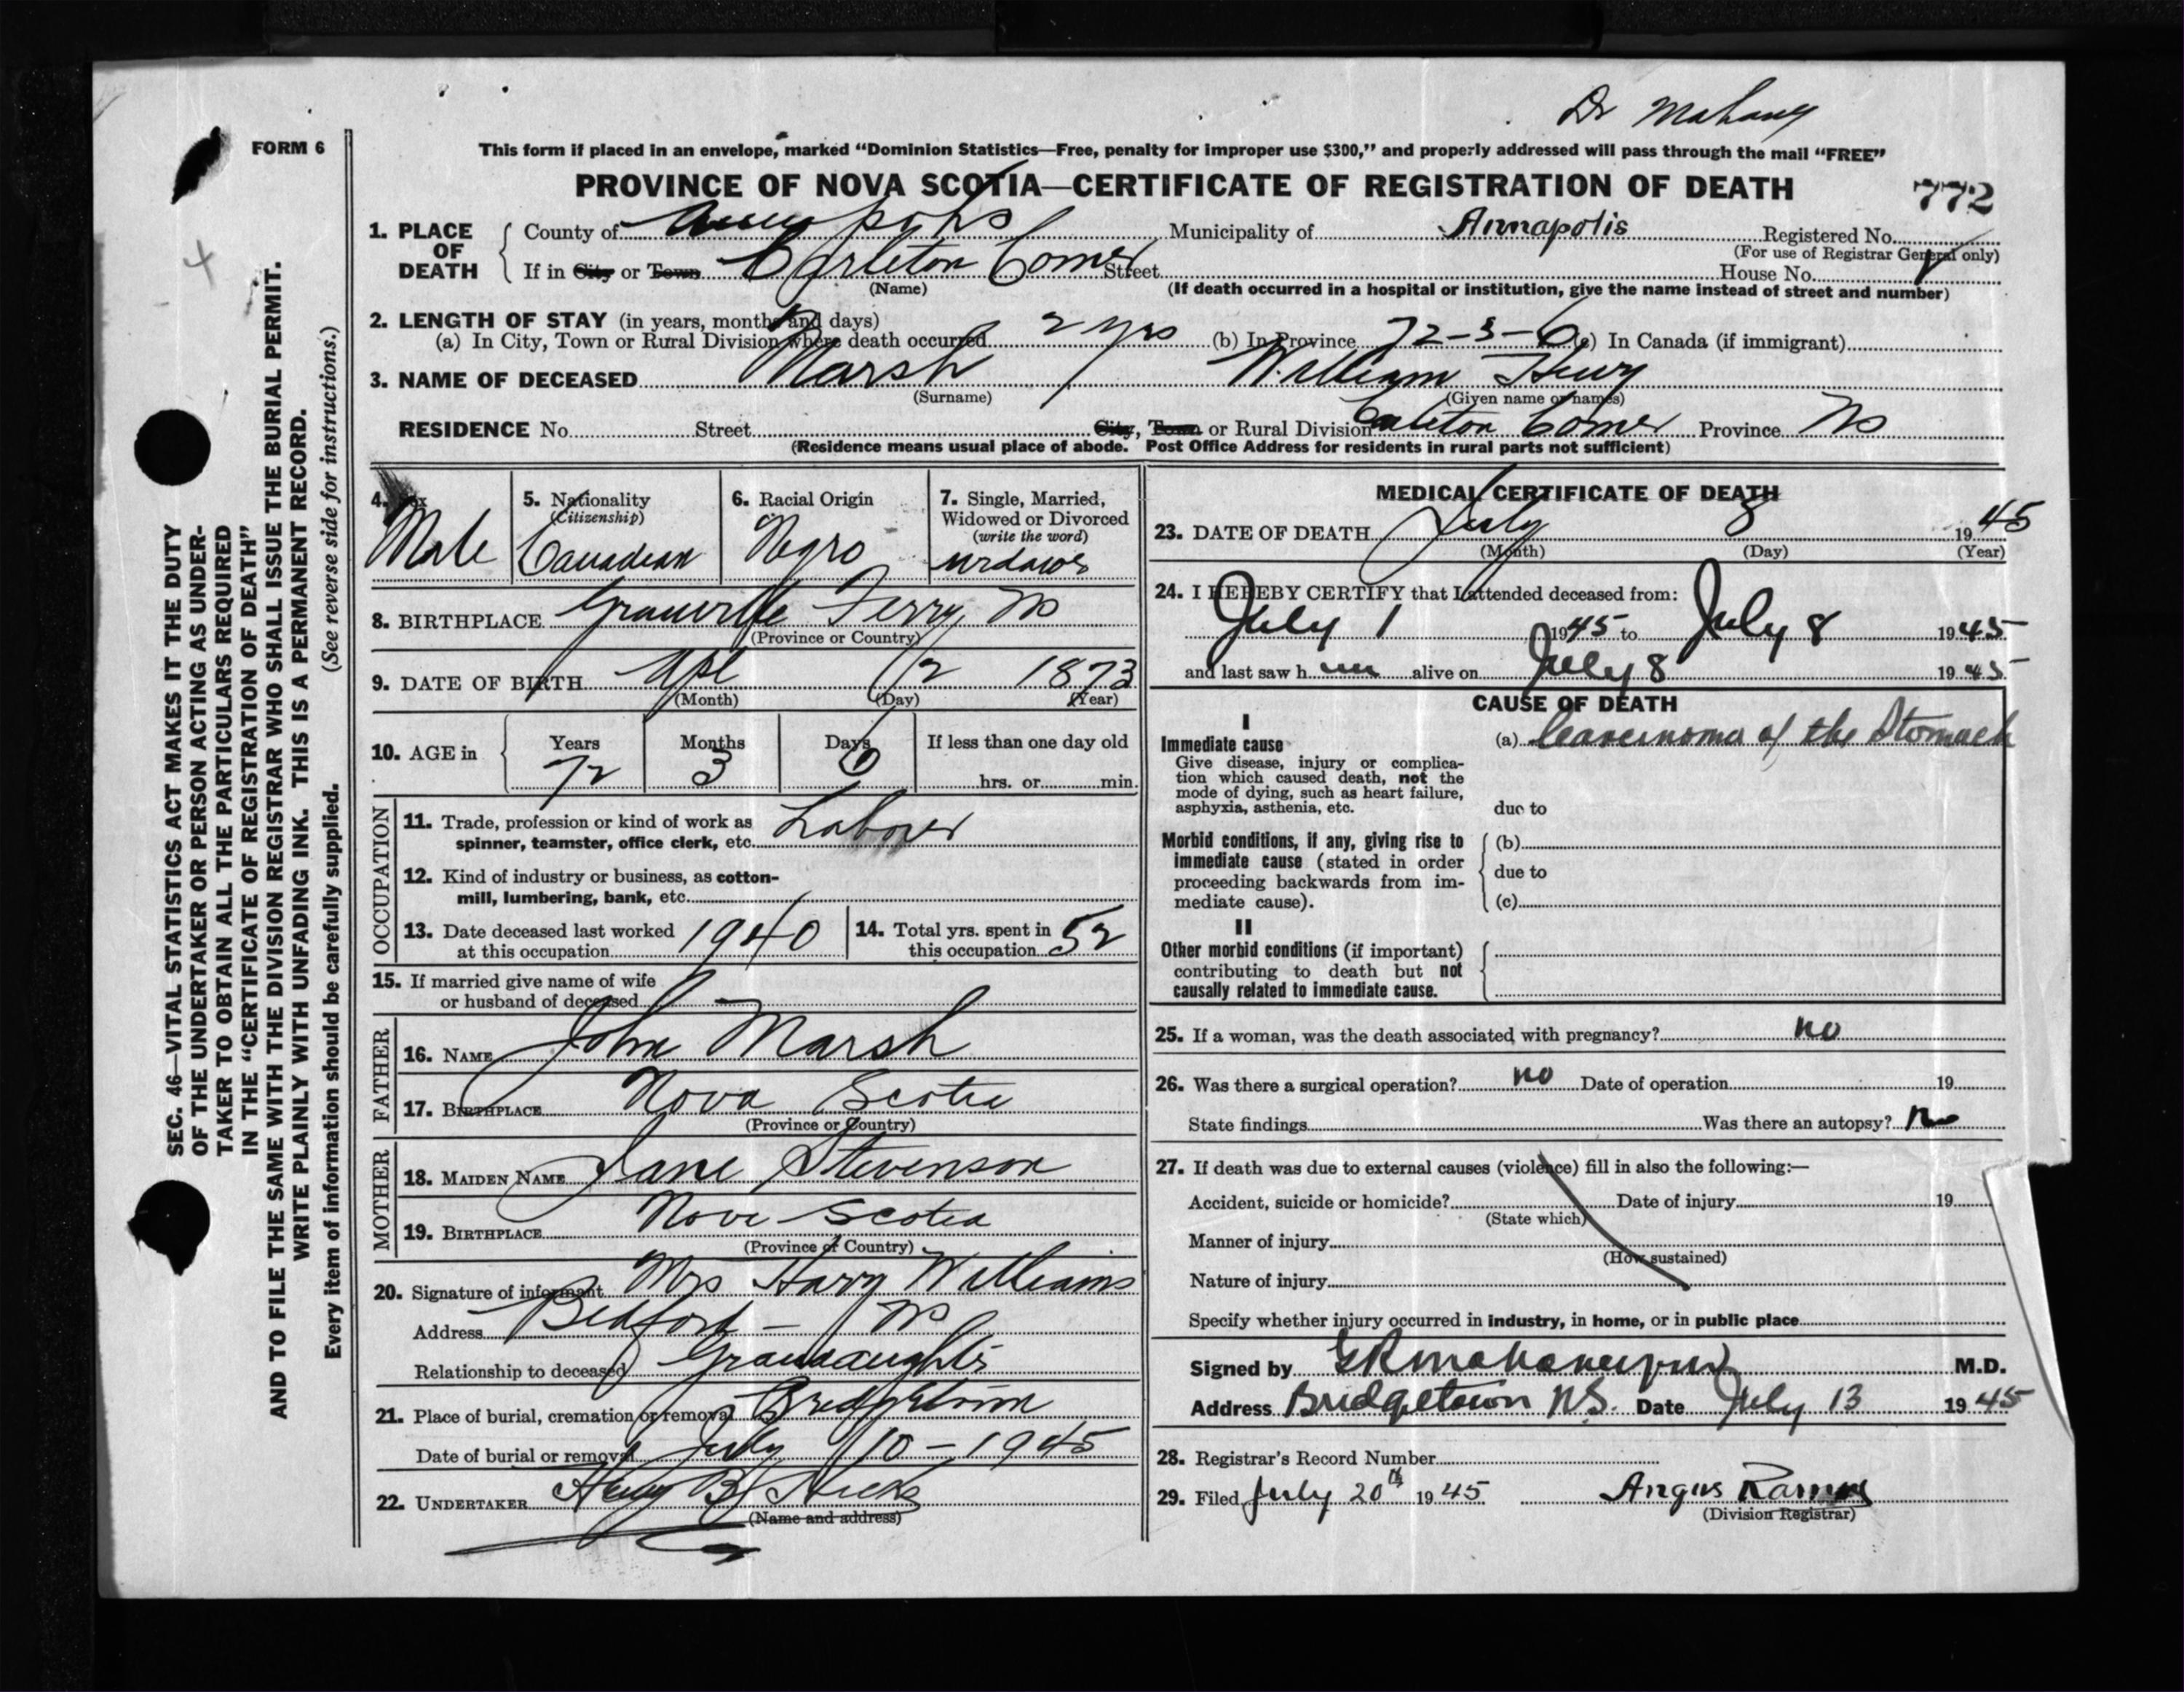 Dr Mahaney
FORM 6
This form if placed in an envelope, marked “Dominion Statistics—Free, penalty for improper use $300,” and properly addressed will pass through the mail “FREE”
PROVINCE OF NOVA SCOTIA—CERTIFICATE OF REGISTRATION OF DEATH
772
4
SEC. 46—VITAL STATISTICS ACT MAKES IT THE DUTY
OF THE UNDERTAKER OR PERSON ACTING AS UNDER-
TAKER TO OBTAIN ALL THE PARTICULARS REQUIRED
IN THE “CERTIFICATE OF REGISTRATION OF DEATH”
AND TO FILE THE SAME WITH THE DIVISION REGISTRAR WHO SHALL ISSUE THE BURIAL PERMIT.
WRITE PLAINLY WITH UNFADING INK. THIS IS A PERMANENT RECORD.
Every item of information should be carefully supplied. (See reverse side for instructions.)
1. PLACE OF DEATH
County of Annapolis Municipality of Annapolis Registered No.
(For use of Registrar General only)
If in City or Town Carleton Corner Street House No.
(Name) (If death occurred in a hospital or institution, give the name instead of street and number)
2. LENGTH OF STAY (in years, months and days)
(a) In City, Town or Rural Division where death occurred 2 yrs (b) In Province 72-3-6 (c) In Canada (if immigrant)
3. NAME OF DECEASED Marsh William Henry
(Surname) (Given name or names)
RESIDENCE No. Street City, Town or Rural Division Carleton Corner Province NS
(Residence means usual place of abode. Post Office Address for residents in rural parts not sufficient)
4. Sex
Male
5. Nationality
(Citizenship)
Canadian
6. Racial Origin
Negro
7. Single, Married,
Widowed or Divorced
(write the word)
8. BIRTHPLACE Granville Ferry, NS
(Province or Country)
9. DATE OF BIRTH Apl 2 1873
(Month) (Day) (Year)
10. AGE in Years Months Days If less than one day old
72 3 6 hrs. or min.
OCCUPATION
11. Trade, profession or kind of work as
spinner, teamster, office clerk, etc. Laborer
12. Kind of industry or business, as cotton-
mill, lumbering, bank, etc.
13. Date deceased last worked
at this occupation 1940
14. Total yrs. spent in
this occupation 52
15. If married give name of wife
or husband of deceased
FATHER
16. NAME John Marsh
17. BIRTHPLACE Nova Scotia
(Province or Country)
MOTHER
18. MAIDEN NAME Jane Stevenson
19. BIRTHPLACE Nova Scotia
(Province or Country)
20. Signature of informant Mrs Harry Williams
Address Bedford — NS
Relationship to deceased Grandaughter
21. Place of burial, cremation or removal Bridgetown
Date of burial or removal July 10 - 1945
22. UNDERTAKER Henry B Hicks
(Name and address)
MEDICAL CERTIFICATE OF DEATH
23. DATE OF DEATH July 8 1945
(Month) (Day) (Year)
24. I HEREBY CERTIFY that I attended deceased from:
July 1 1945 to July 8 1945
and last saw h im alive on July 8 1945
CAUSE OF DEATH
I
Immediate cause
Give disease, injury or complica-
tion which caused death, not the
mode of dying, such as heart failure,
asphyxia, asthenia, etc.
(a) Carcinoma of the Stomach
due to
Morbid conditions, if any, giving rise to
immediate cause (stated in order
proceeding backwards from im-
mediate cause).
(b)
due to
(c)
II
Other morbid conditions (if important)
contributing to death but not
causally related to immediate cause.
25. If a woman, was the death associated with pregnancy? no
26. Was there a surgical operation? no Date of operation 19
State findings Was there an autopsy? No
27. If death was due to external causes (violence) fill in also the following:—
Accident, suicide or homicide? Date of injury 19
(State which)
Manner of injury
(How sustained)
Nature of injury
Specify whether injury occurred in industry, in home, or in public place
Signed by M.D.
Address Bridgetown N.S. Date July 13 1945
28. Registrar's Record Number
29. Filed July 20th 1945 Angus
(Division Registrar)